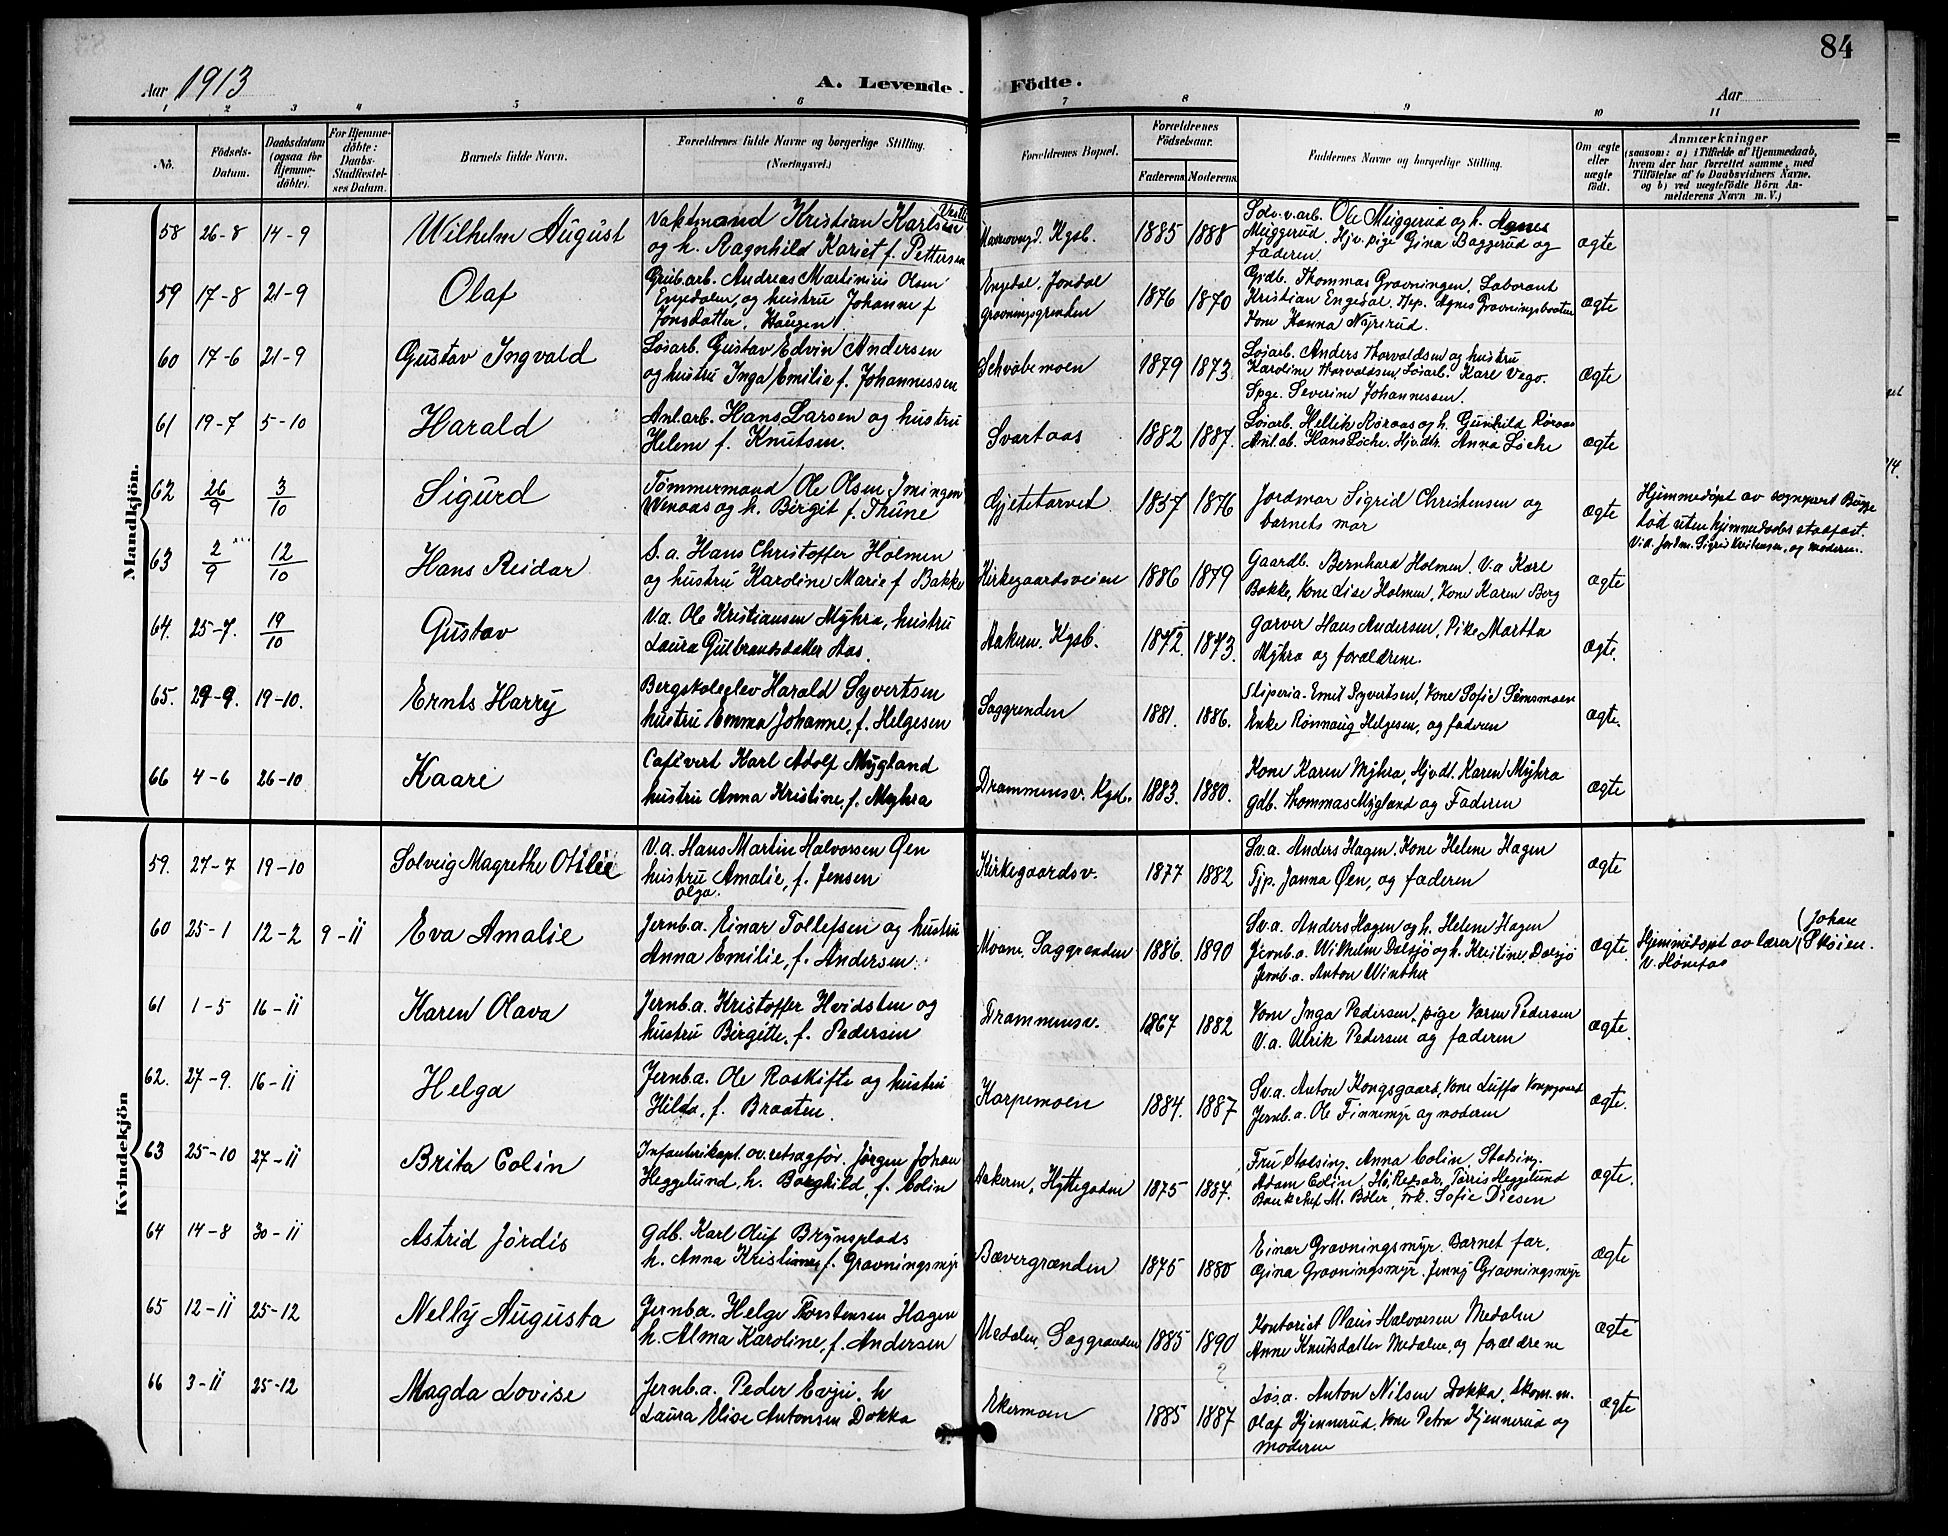 84
Aar 1913
A. Levende
Födte.
Aar
1 2 3 4 5 6 7 8 9 10 11
Nö.
Födsels-Datum.
Daabsdatum (ogsaa for Hjemme-döbte).
For Hjemme-döbte: Daabs-Stadfæstel-ses Datum.
Barnets fulde Navn.
Forældrenes fulde Navne og borgerlige Stilling. (Næringsvei.)
Forældrenes Bopæl.
Forældrenes Födselsaar.
Faderens. Moderens.
Faddernes Navne og borgerlige Stilling.
Om ægte eller uægte födt.
Anmærkninger
(saasom: a) i Tilfælde af Hjemmedaab, hvem der har forrettet samme, med Tilföielse af to Daabsvidners Navne, og b) ved uægtefödte Börn An-melderens Navn m. V.)
Mandkjön.
58 26-8 14-9 Wilhelm August
Vaktmand Kristian Karlsen
og h. Ragnhild Kariet f. Pettersen
Kgsb. 1885 1888
Sølv.v.arb. Ole Muggerud og h. Agnes
Muggerud. Hjv. pige Gina Baggerud og
faderen.
ægte
59 17-8 21-9 Olaf
Grub.arb. Andreas Martinius Olsen
Engedalen, og hustru Johanne f
Jonsdatter, Haugen
Engedal, Jondal
Gravningsgrenden
1876 1870
Grdb. Thommas Gravningen, Laborant
Kristian Engedal, Agnes Gravningsbraaten
Kone Hanna Nyrerud.
ægte
60 17-6 21-9 Gustav Ingvald
Løsarb. Gustav Edvin Andersen
og hustru Inga Emilie f. Johannessen
Schvabemoen 1879 1873.
Løsarb. Anders Thorvaldsen og hustru
Karoline Thorvaldsen, Løsarb. Karl Vego.
Spge. Severine Johannessen.
ægte
61 19-7 5-10 Harald
Anl.arb. Hans Larsen og hustru
Helene f. Knutsen.
Svartaas 1882 1887.
Løsarb. Hellik Røraas og h. Gunhild Røraas
Anl.ab. Hans Løche. Hjv.dtr. Anna Løche
ægte
62 26/9 3/10 Sigurd
Tømmermand Ole Olsen Imingen
Venaas og h. Birgit f. Thune
Gjetetorvet 1857 1876
Jordmor Sigrid Christensen og
barnets mor
ægte
Hjemmedøpt av sognprest Bugge
død uten hjemmedaabs stadfæst.
63 2/9 12/10 Hans Reidar
S.a. Hans Christoffer Holmen
og hustru Karoline Marie f Bakke
Kirkegaardsveien 1886 1879
Gaardb. Bernhard Holmen. V.a Karl
Bakke, Kone Lise Holmen, Kone Karen Berg
ægte
64. 25-7. 19/10 Gustav
V.a. Ole Kristiansen Myhra, hustru
Laura Gulbrandsdatter Aas.
Aakern. Kgsb. 1872. 1873.
Garver Hans Andersen, Pike Martha
Myhra og forældrene.
ægte.
65. 29-9. 19-10. Ernts Harry
Bergskoleelev Harald Syvertsen
hustru Emma Johanne, f. Helgesen
Saggrenden 1881. 1886.
Sliperia. Emil Syvertsen, Kone Sofie Semsmoen
Enke Rønnaug Helgesen, og faderen
ægte.
66 4-6 26-10 Kaare
Cafévert Karl Adolf Mygland
hustru Anna Kristine, f. Myhra
Drammensv. Kgsb. 1883. 1880.
Kone Karen Myhra, Hjvdt. Karen Myhra
gdb. Thommas Mygland og Faderen
ægte
Kvindekjön
59. 27-7 19-10 Solveig Magrethe Otilie
V.a. Hans Martin Halvorsen Øen
hustru Amalie, f. Jensen
Olga.
Kirkegaardsv. 1877 1882
Sv.a. Anders Hagen, Kone Helene Hagen
Tjp. Janna Øen, og faderen
ægte
60 25-1 12-2 9-11 Eva Amalie
Jernb.a. Einar Tollefsen og hustru
Anna Emilie, f. Andersen
Moane, Saggrenden 1886. 1890
Sv.a. Anders Hagen og h. Helene Hagen
Jernb.a. Wilhelm Dalsjø og h. Kristine Dalsjø
Jernb.a. Anton Winther
ægte.
Hjemmedøpt av lærer (Johan Skøien.
V. Hønefos
61 1-5 16-11 Karen Olava
Jernb.a. Kristoffer Hvidsten og
hustru Birgitte, f. Pedersen
Drammensv. 1867 1882
Kone Inga Pedersen, pige Karen Pedersen
V.a. Ulrik Pedersen og faderen
ægte.
62. 27-9. 16-11 Helga
Jernb.a. Ole Roskifte og hustru
Hilda, f. Braaten.
Karpemoen 1884. 1887
Sv.a. Anton Kongsgaard, Kone Luffa Kongsgaard
Jernb.a. Ole Finnemyr og moderen
ægte.
63 25-10 27-11 Brita Colin
Infanterikapt. ov.retsagfør. Jørgen Johan
Heggelund, h. Borghild, f. Colin
Aakern, Hyttegaden 1875 1887.
Fru Stalsing, Anna Colin, Stalsing.
Adam Colin, Tørris Heggelund
Bankchef M. Bøler, frk. Sofie Diesen
ægte.
64 14-8 30-11 Astrid Jørdis
Gdb. Karl Oluf Brynsplads
h. Anna Kristiane, f. Gravningsmyr
Bævergrænden 1875 1880
Einar Gravningsmyr. Barnet far.
Gina Gravningsmyr. Jenny Gravningsmyr
ægte
65 12-11 25-12 Nelly Augusta
Jernb.a. Helge Thorstensen Hagen
h. Alma Karoline, f. Andersen
Medalen, Saggrænden 1885 1890
?
Kontorist Olaus Halvorsen Medalen
Anne Knutsdatter Medalen, og forældrene
ægte
66 3-11 25-12 Magda Lovise
Jernb.a. Peder Evju, h
Laura Elise Antonsen Dokka
Ekermoen 1885 1887
Løs.a. Anton Nilsen Dokka, Skom.m.
Olaf Hjennerud, Kone Petra Hjennerud og
moderen
ægte